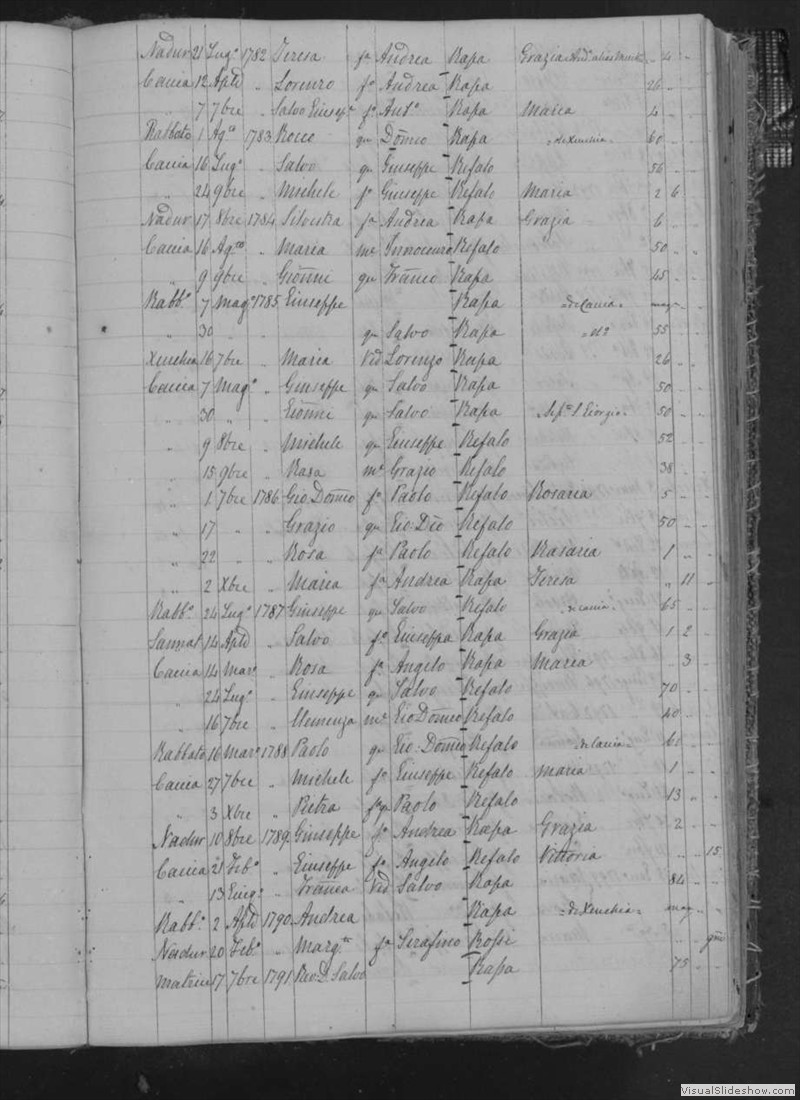 Nadur 21 Lug.o 1782 Teresa fa Andrea Rapa Grazia " 4 "
Caccia 12 Aple " Lorenzo fo Andrea Rapa 26 "
" 7 7bre " Salvo Giusep.e fo Ant.o Rapa Maria 4 "
Rabbato 1 Ag.to 1783 Rocco qm Domco Rapa "di Xeuchia" 60 "
Caccia 16 Lug.o " Salvo qm Giuseppe Refalo 56 "
" 24 9bre " Michele fo Giuseppe Refalo Maria 2 6
Nadur 17 8bre 1784 Silvestra fa Andrea Rapa Grazia 6 "
Caccia 16 Ag.to " Maria me Innocenzo Refalo 50 "
" 9 9bre " Gionni qm Franco Rapa 45 "
Rabb.o 7 Mag.o 1785 Giuseppe Rapa "di Caccia" mag.
" 30 " " qm Salvo Rapa " 55 "
Xeuchia 16 7bre " Maria Vid Lorenzo Rapa 26 "
Caccia 7 Mag.o " Giuseppe qm Salvo Rapa 50 "
" 30 " " Gionni qm Salvo Rapa S. Giorgio 50 "
" 9 8bre " Michele qm Giuseppe Refalo 52 "
" 15 9bre " Rosa me Grazio Refalo 38 "
" 1 7bre 1786 Gio Domco fo Paolo Refalo Rosaria 5 "
" 17 " Grazio qm Gio: Dco Refalo 50 "
" 22 " " Rosa fa Paolo Refalo Rosaria 1 "
" 2 Xbre " Maria fa Andrea Rapa Teresa " 11 "
Rabb.o 24 Lug.o 1787 Giuseppe qm Salvo Refalo "di Caccia" 65 "
Sannat 14 Aple " Salvo fo Giuseppe Rapa Grazia 1 2
Caccia 14 Mar.o " Rosa fa Angelo Rapa Maria " 3 "
" 24 Lug.o " Giuseppe qm Salvo Refalo 70 "
" 16 7bre " Clemenza me Gio Domco Refalo 40 "
Rabbato 16 Mar.o 1788 Paolo qm Gio: Domco Refalo "di Caccia" 61 "
Caccia 27 7bre " Michele fo Giuseppe Refalo Maria 1 "
" 3 Xbre " Pietra fa qm Paolo Refalo 13 "
Nadur 10 8bre 1789 Giuseppe fo Andrea Rapa Grazia 2 "
Caccia 21 Feb.o " Giuseppe fo Angelo Refalo Vittoria " " 15
" 13 Giug.o " Franca Vid Salvo Rapa 84 "
Rabb.o 2 Aple 1790 Andrea Rapa "di Xeuchia" mag.
Nadur 20 Feb.o " Marg.ta fa Serafino Rossi
Matrice 17 7bre 1791 Rev. D. Salvo Rapa 75 "
VisualSlideshow.com